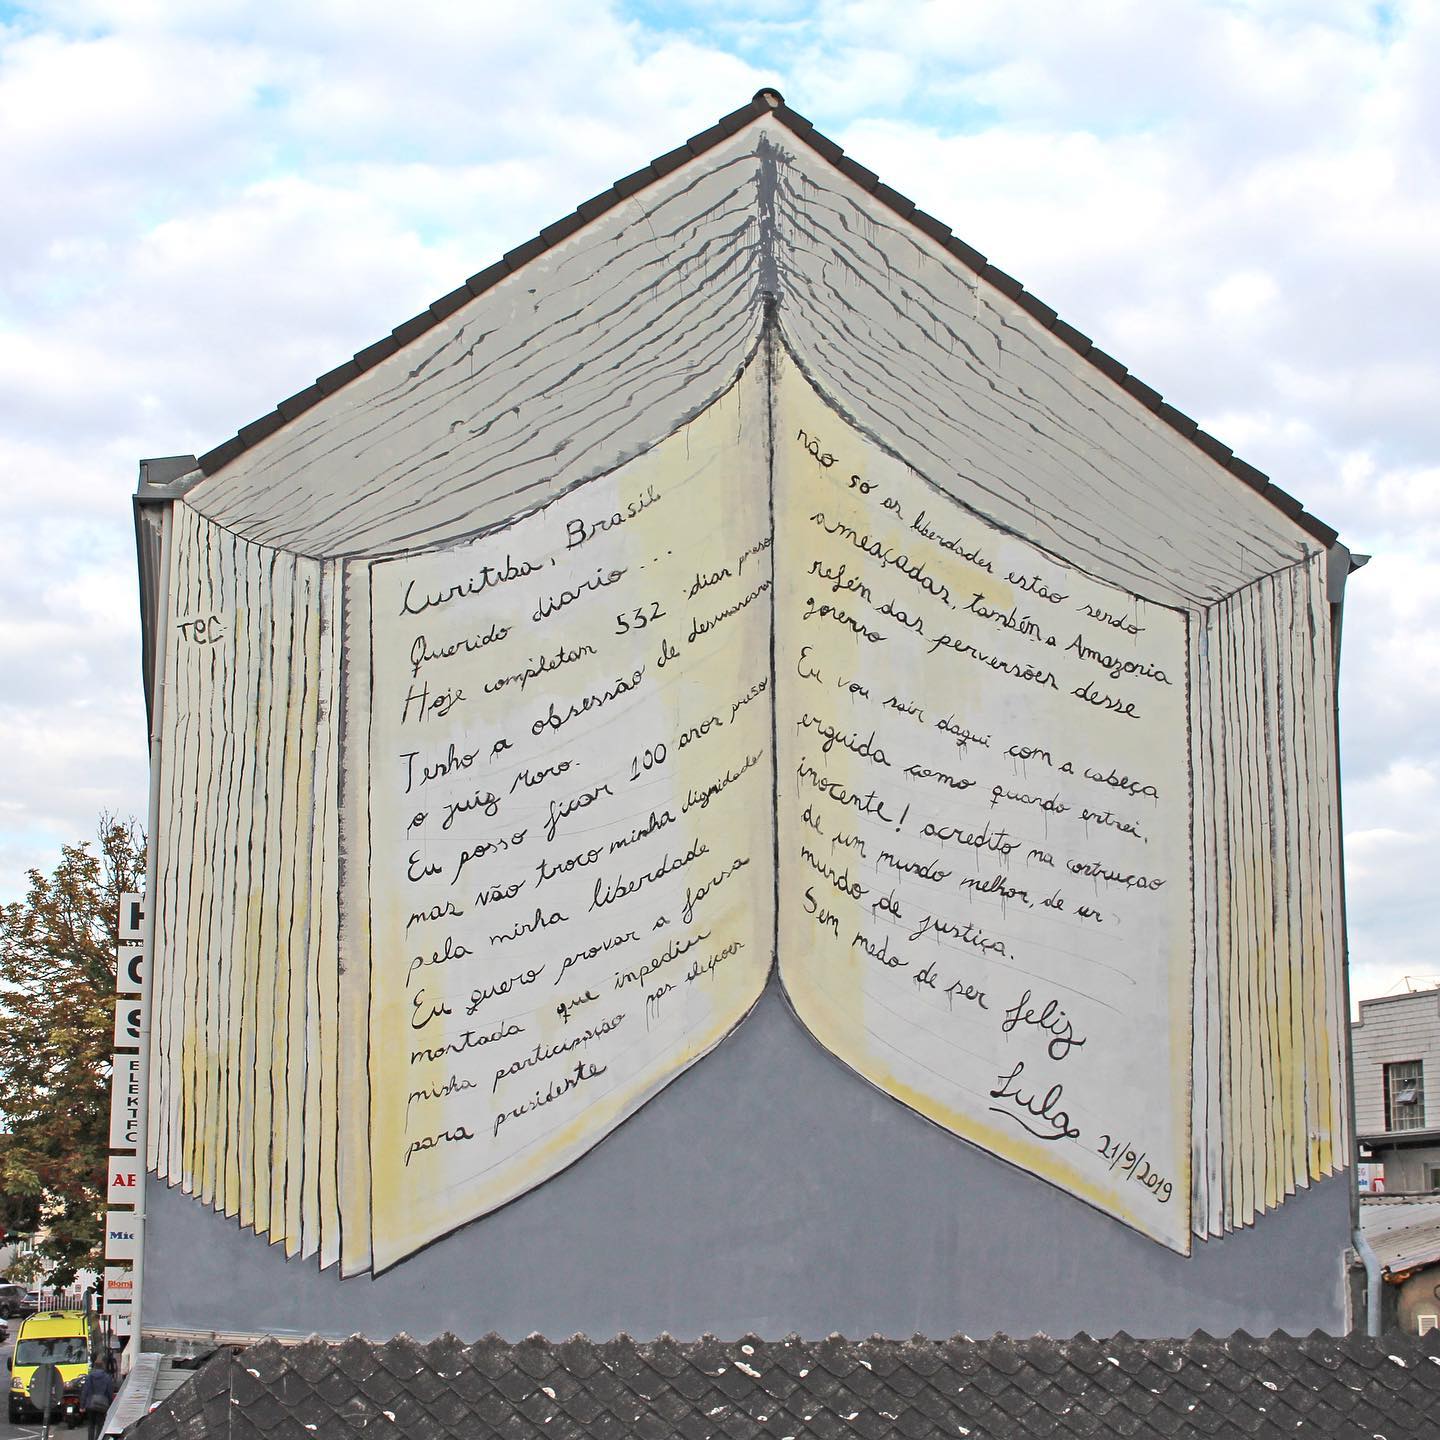 Curitiba, Brasil
Querido diario ...
Hoje completam 532 dias preso
Tenho a obsessão de desmascarar
o juiz Moro.
Eu posso ficar 100 anos preso
mas não troco minha dignidade
pela minha liberdade
Eu quero provar a farsa
montada que impediu
minha participação nas eleições
para presidente
não so as liberdades estão sendo
ameaçadas, também a Amazonia
refén das perversões desse
governo
Eu vou sair daqui com a cabeça
erguida como quando entrei.
inocente! acredito na contruçao
de um mundo melhor, de un
mundo de justiça.
Sem medo de ser feliz
Lula
21/9/2019
H
ELEKTRO
AE
Mie
Blom